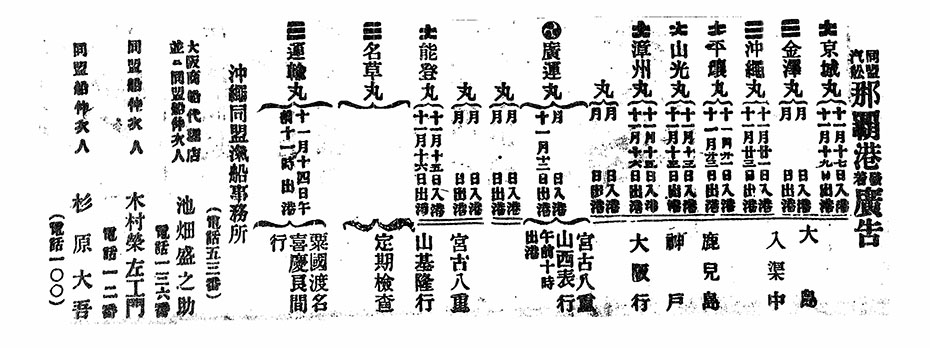 同盟汽船 那覇港發着廣告
京城丸 十一月十七日入港 十一月十九日出港
金澤丸 月 日入港 月 日出港 入渠中
沖繩丸 十一月廿一日入港 十一月廿三日出港
平壤丸
山光丸 十一月十三日入港 十一月十五日出港
漳州丸 十一月十五日入港 十一月十六日出港
大島
鹿兒島
神戸
大阪行
丸 月 日入港 月 日出港
廣運丸 月 十一月十二日出港
宮古八重山西表行
午前十時出港
丸 月 日入港 月 日出港
丸 月 日入港 月 日出港
能登丸 十一月十五日入港 十一月十六日出港
宮古八重山基隆行
名草丸 定期檢查
運輸丸 十一月十四日午前十一時出港
粟國渡名喜慶良間行
沖繩同盟漁船事務所
(電話五三番)
大阪商船代理店
並ニ同盟船仲次人 池畑盛之助
電話一三六番
同盟船仲次人 木村榮左工門
電話一二番
同盟船仲次人 杉原大吾
(電話一〇〇)